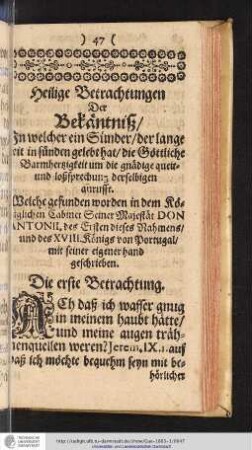 ( 47 )
Heilige Betrachtungen
Der
Bekäntniß/
In welcher ein Sünder/der lange
zeit in sünden gelebt hat/die Göttliche
Barmhertzigkeit um die gnädige queit-
und loßsprechung derselbigen
anrufft.
Welche gefunden worden in dem Kö-
niglichen Cabinet Seiner Majestät DON
ANTONII, des Ersten dieses Nahmens/
und des XVIII. Königs von Portugal/
mit seiner eigener hand
geschrieben.
Die erste Betrachtung.
ACh daß ich wasser gnug
in meinem haubt hätte/
und meine augen träh-
nenquellen weren? Jerem. IX. 1. auf
daß ich möchte bequehm seyn mit be-
hörlicher